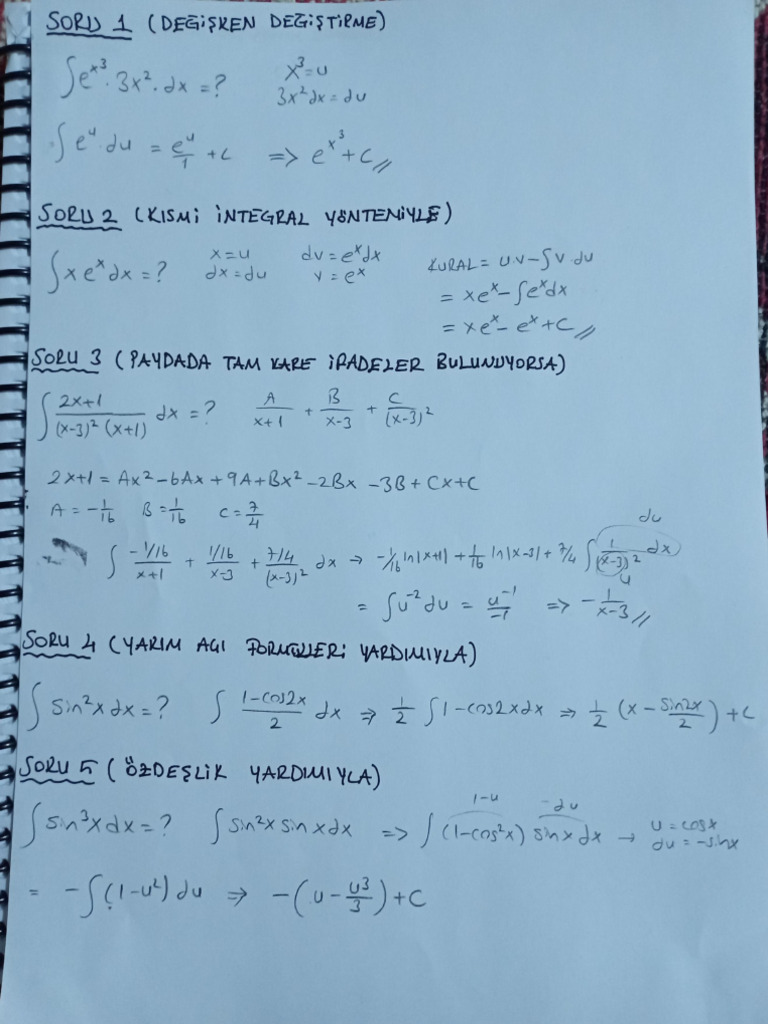 SORU 1 (DEĞİŞKEN DEĞİŞTİRME)
∫e^x³ · 3x² · dx = ? x³ = u
3x²dx = du
∫e^u · du = e^u/1 + c => e^x³ + C //
SORU 2 (KISMİ İNTEGRAL YÖNTEMİYLE)
∫xe^x dx = ? x = u dv = e^x dx KURAL = u.v - ∫v.du
dx = du v = e^x
= xe^x - ∫e^x dx
= xe^x - e^x + C //
SORU 3 (PAYDADA TAM KARE İFADELER BULUNUYORSA)
∫ 2x+1/((x-3)² (x+1)) dx = ? A/(x+1) + B/(x-3) + C/(x-3)²
2x+1 = Ax² - 6Ax + 9A + Bx² - 2Bx - 3B + Cx + C
A = -1/16 B = 1/16 C = 7/4
du
∫ (-1/16)/(x+1) + (1/16)/(x-3) + (7/4)/(x-3)² dx → -1/16 ln|x+1| + 1/16 ln|x-3| + 7/4 ∫ 1/(x-3)² dx
u
= ∫u⁻² du = u⁻¹/-1 => - 1/(x-3) //
SORU 4 (YARIM AÇI FORMÜLLERİ YARDIMIYLA)
∫sin²x dx = ? ∫ (1-cos2x)/2 dx => 1/2 ∫1-cos2x dx => 1/2 (x - sin2x/2) + C
SORU 5 (ÖZDEŞLİK YARDIMIYLA)
1-u -du
∫sin³x dx = ? ∫sin²x sinx dx => ∫(1-cos²x) sinx dx → u = cosx
du = -sinx
= -∫(1-u²) du => -(u - u³/3) + C